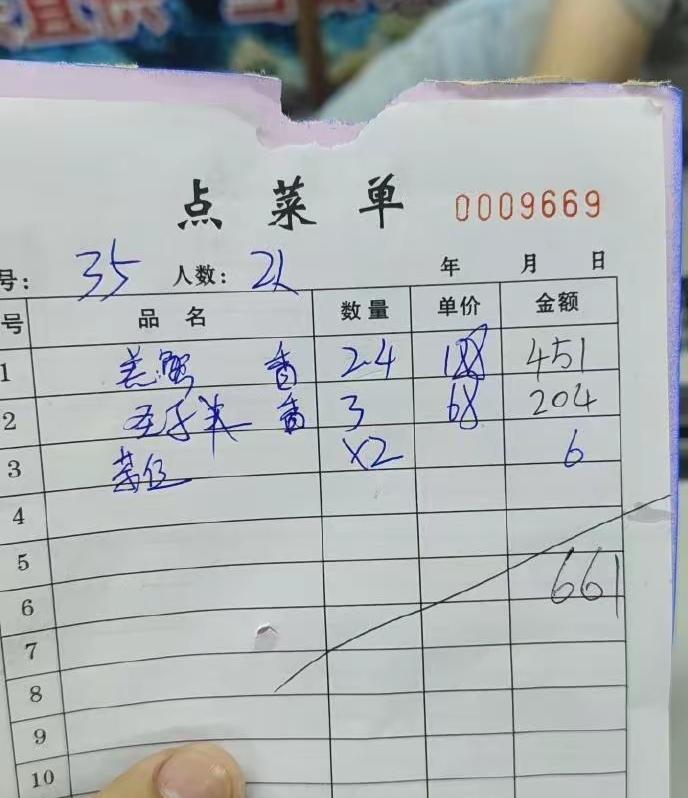 点菜单 0009669
号: 35 人数: 2人 年 月 日
号 品名 数量 单价 金额
1 羔蟹 香 2.4 188 451
2 圣子米 香 3 68 204
3 茶位 x2 6
4
5
6 661
7
8
9
10